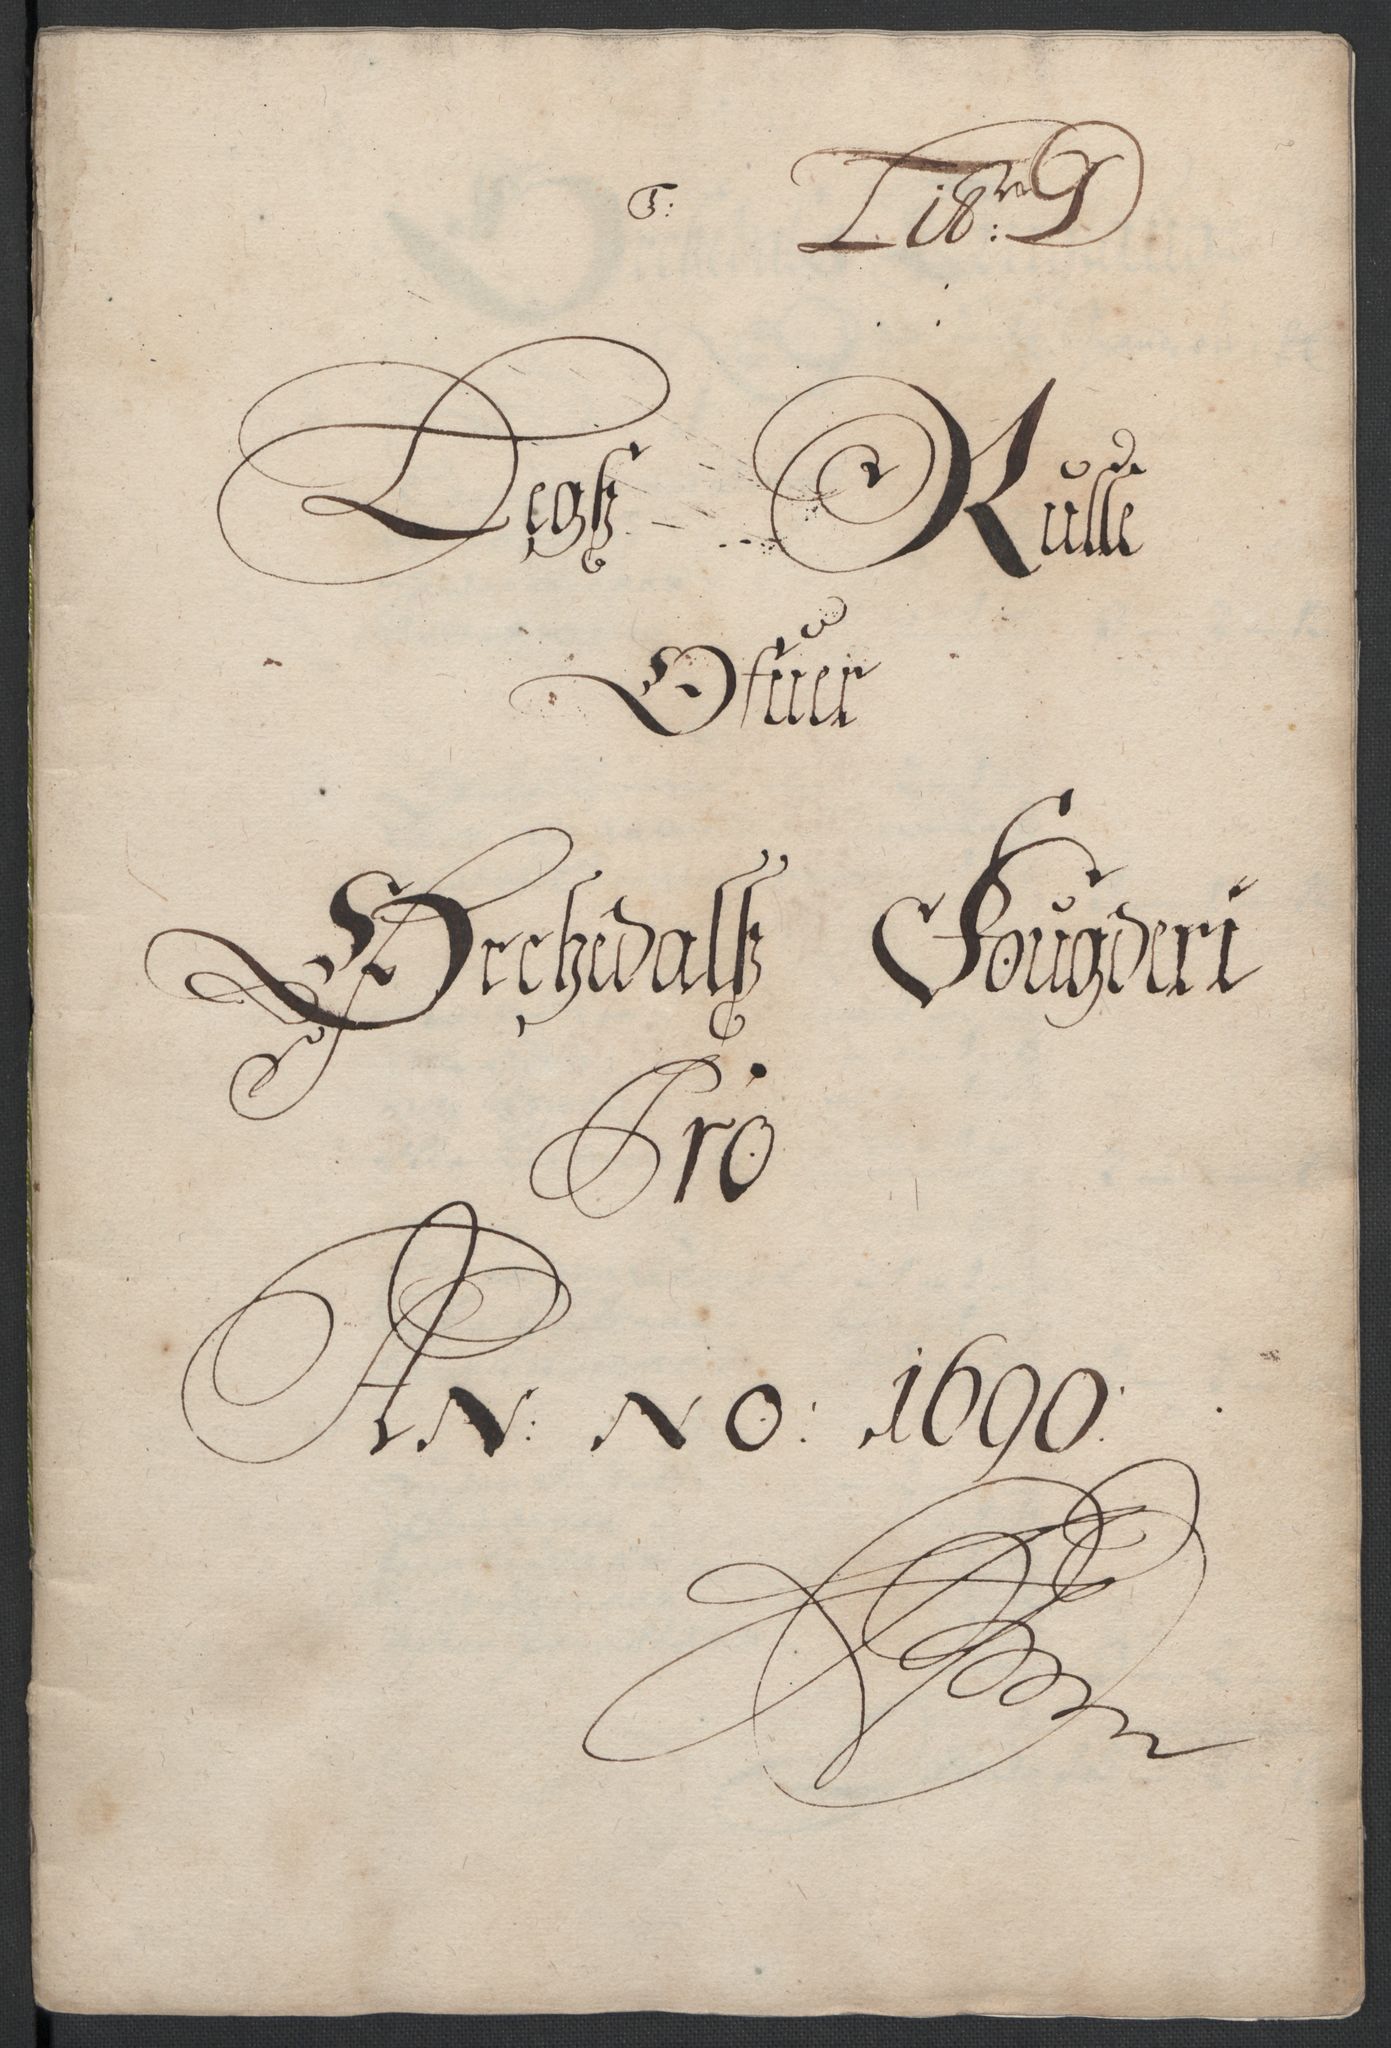 Legß Rulle
Ofuer
Orchedalß Fougderi
Pro
AN: NO: 1690: